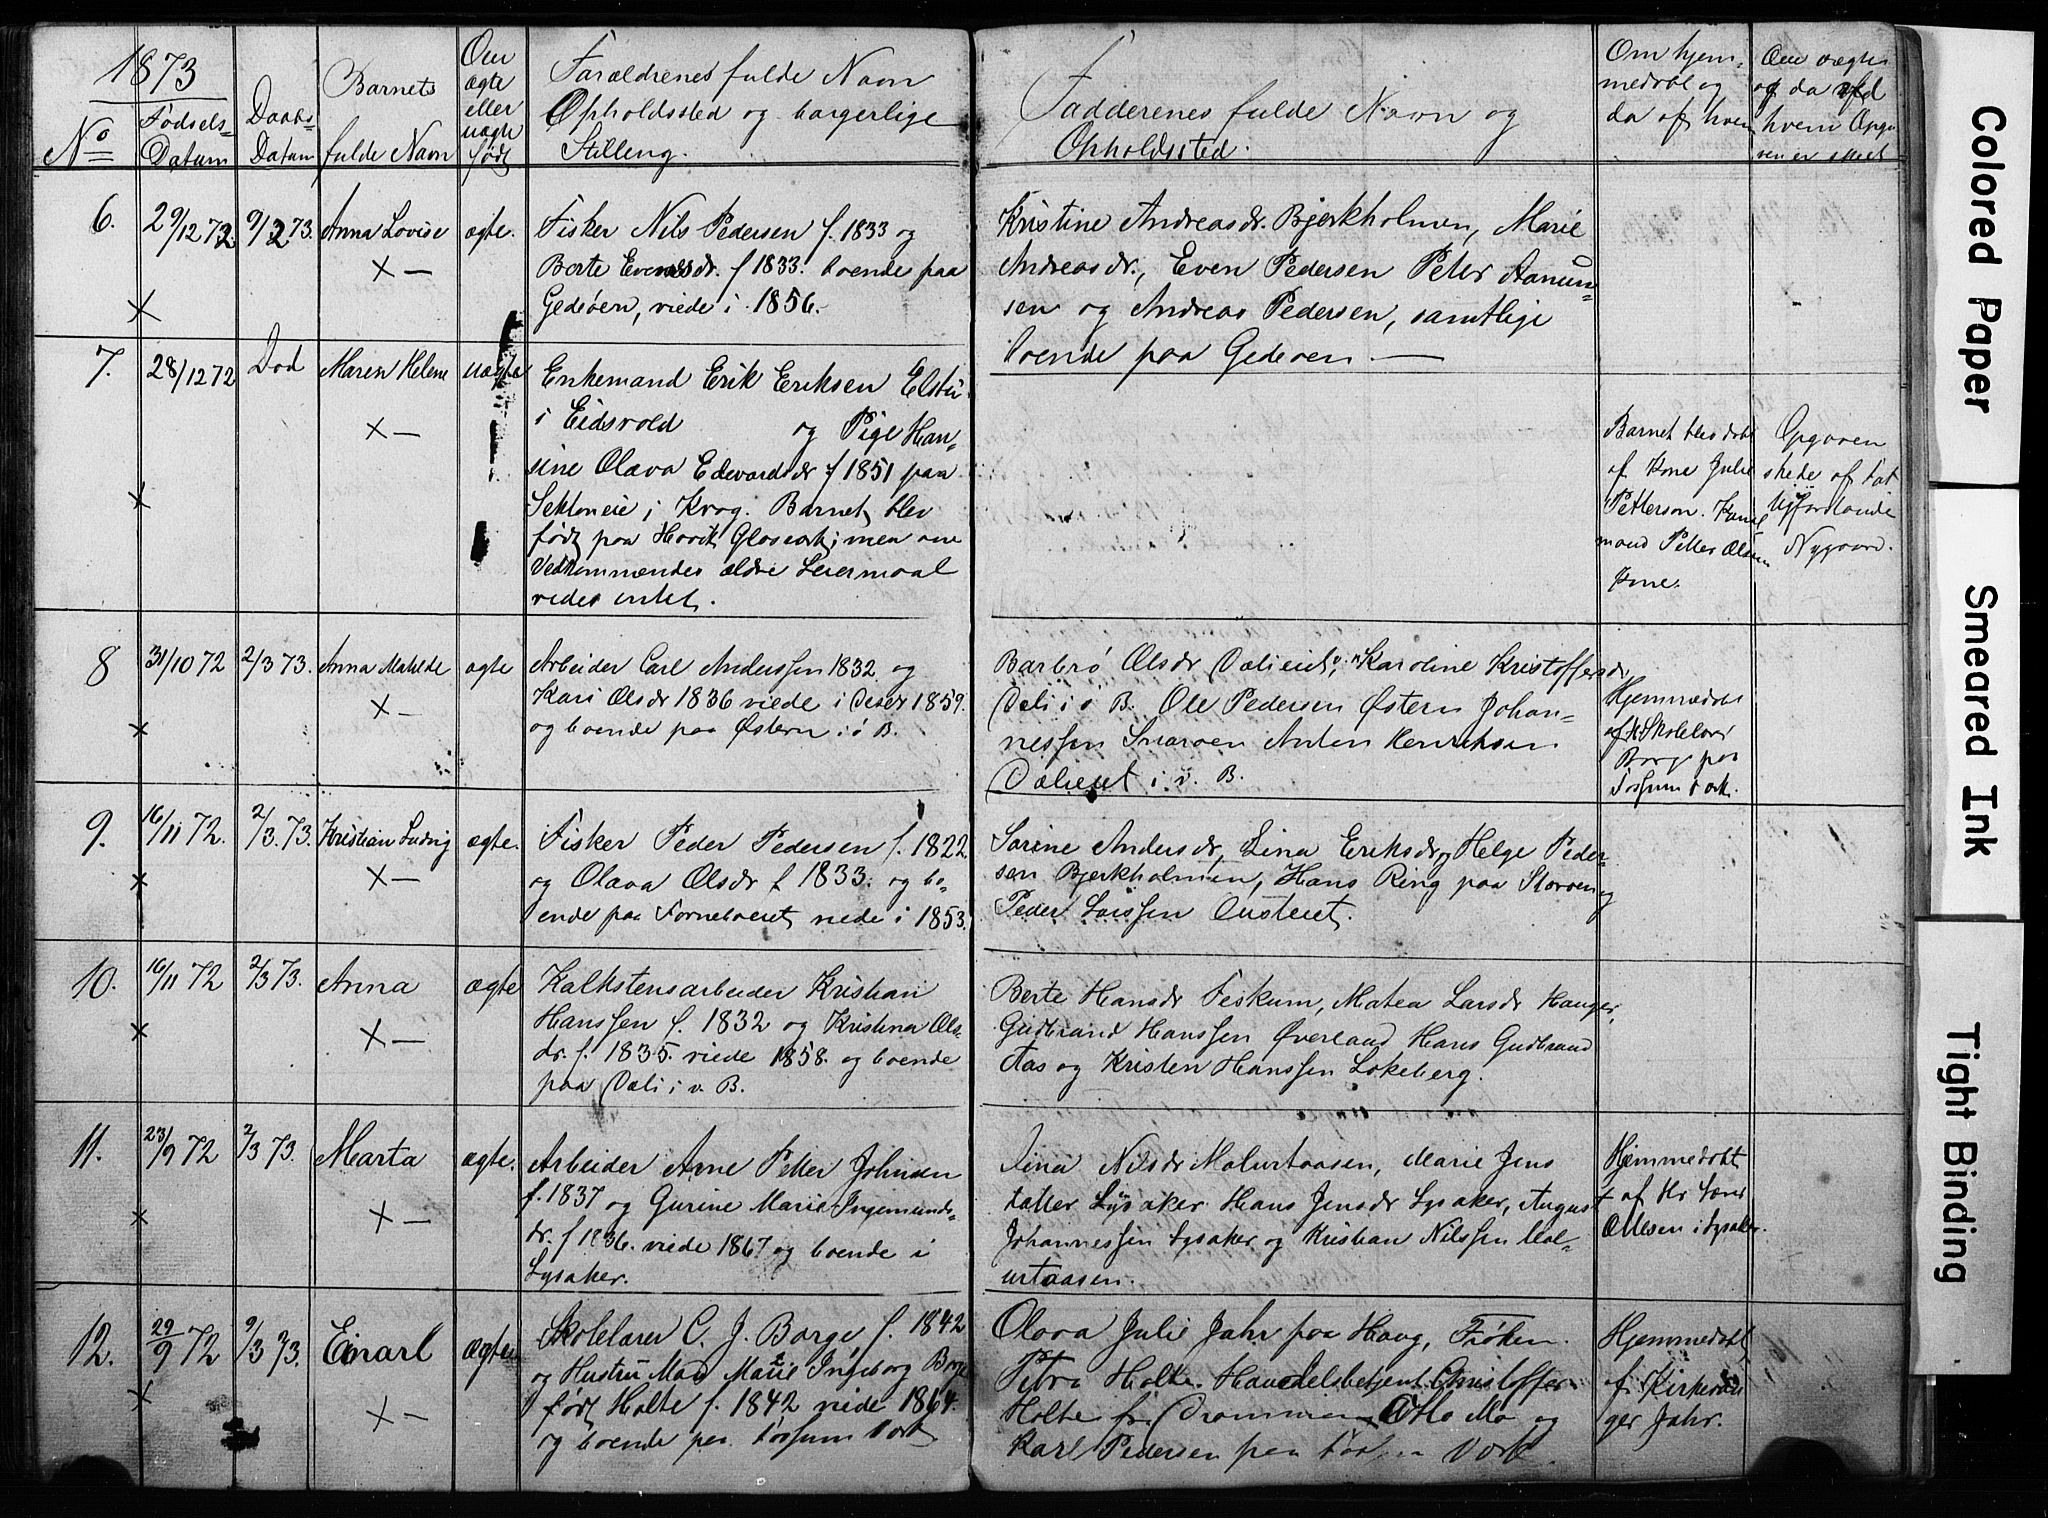 1873
No
Fødsels-
Datum
Daabs-
Datum
Barnets
fulde Navn
Om
ægte
eller
uægte
født
Forældrenes fulde Navn
Opholdssted og borgerlige
Stilling.
Fadderenes fulde Navn og
Opholdssted.
Om hjem-
medøbt og
da af hvem
Om uægte
og da ved
hvem Opga
ven er skeet
6.
29/12 72.
9/3 73.
Anna Lovise
ægte.
Fisker Nils Pedersen f. 1833 og
Berte Evensdr. f 1833. boende paa
Gedøen, viede i 1856.
Kristine Andreasdr. Bjerkholmen, Marie
Andreasdr., Even Pedersen Peter Aanun-
sen og Andreas Pedersen, samtlige
boende paa Gedøen —
7.
28/12 72
Død
Maren Helene
uægte
Enkemand Erik Eriksen Elstu
i Eidsvold og Pige Han-
sine Olava Edevardsdr f 1851 paa
i Krog. Barnet blev
født paa Høvik Glasværk; men om
Vedkommendes ældre Leiermaal
vides intet.
Barnet blev døbt
af Kone Julie
Petterson. Kone
mand Petter Olsen
Kone.
Opgaven
skede af Fat
tigforstande
Nygaard.
8
31/10 72
2/3 73.
Anna Matilde
ægte
Arbeider Carl Anderssen 1832 og
Kari Olsdr 1836 viede i 1859.
og boende paa Østern i ø B.
Barbrø Olsdr Dælieiet, Karoline Kristoffersdr
Dæli i ø B. Ole Pedersen Østern Johan-
nessen Snarøen Anton Henriksen
Dælieiet i v. B.
Hjemmedøbt
af Hr Skolelærer
Borge paa
Fossum Værk.
9.
16/11 72.
2/3 73.
Kristian Ludvig
ægte.
Fisker Peder Pedersen f. 1822.
og Olava Olsdr f 1833. og bo-
ende paa Forneboeiet viede i 1853.
Sørine Andersdr, Lina Eriksdr, Helge Peder-
sen Bjerkholmen, Hans Ring paa Storøen og
Peder Larssen Ousteiet.
10.
16/11 72
2/3 73.
Anna
ægte
Kalkstensarbeider Kristian
Hanssen f. 1832 og Kristina Ols-
dr. f. 1835. viede 1858. og boende
paa Dæli i v. B.
Berte Hansdr Fiskum, Matea Larsdr Hauger,
Gudbrand Hanssen Øverland Hans Gudbrand
Aas og Kristen Hanssen Løkeberg.
11.
23/9 72
2/3 73.
Marta
ægte.
Arbeider Arne Petter Johnsen
f. 1837 og Gurine Marie Ingemunds-
dr. f 1836. viede 1867 og boende i
Lysaker.
Dina Nilsdr Molurtaasen, Marie Jens
datter Lysaker Hans Jensdr Lysaker, August
Johannessen Lysaker og Kristian Nilssen Mol-
urtaasen.
Hjemmedøbt
af Hr
Ottesen i Lysaker.
12.
29/9 72
9/3 73.
Einarl
ægte
Skolelærer C. J. Borge f. 1842
og Hustru Mad Marie Ingeborg Borge
født Holte f. 1842 viede 1864.
og boende paa Fossum Værk
Olava Julie Jahr paa Haug, Frøken
Petra Holte. Handelsbetjent Christoffer
Holte fra Drammen Otto Mo og
Karl Pedersen paa Fossum Værk.
Hjemmedøbt
af Kirkesan
ger Jahr.
Colored Paper
Smeared Ink
Tight Binding